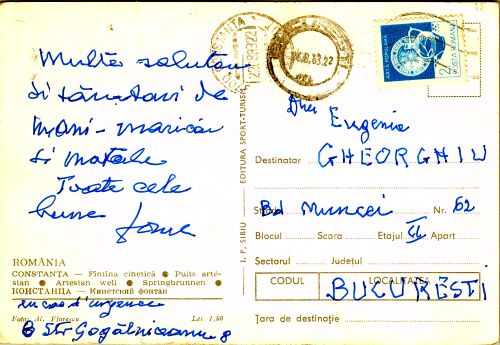 Multe salutări
și sărutări de
mani - maricăi
și natale
Toate cele
bune
ROMÂNIA
CONSTANȚA — Fîntîna cinetică ● Puits arté-
sian ● Artesian well ● Springbrunnen ●
КОНСТАНЦА — Кинетский фонтан
d'urgence
Foto: Al. Florescu Lei 1,50
Str Gogălniceanu 8
I. P. SIBIU — EDITURA SPORT-TURISM
CONSTANȚA
.8.83.22
POSTA ROMANA
Eugenia
Destinatar GHEORGHIU
Bd Muncei Nr. 62
Blocul Scara Etajul II Apart
Sectorul Județul
CODUL LOCALITATEA
BUCUREȘTI
Țara de destinație